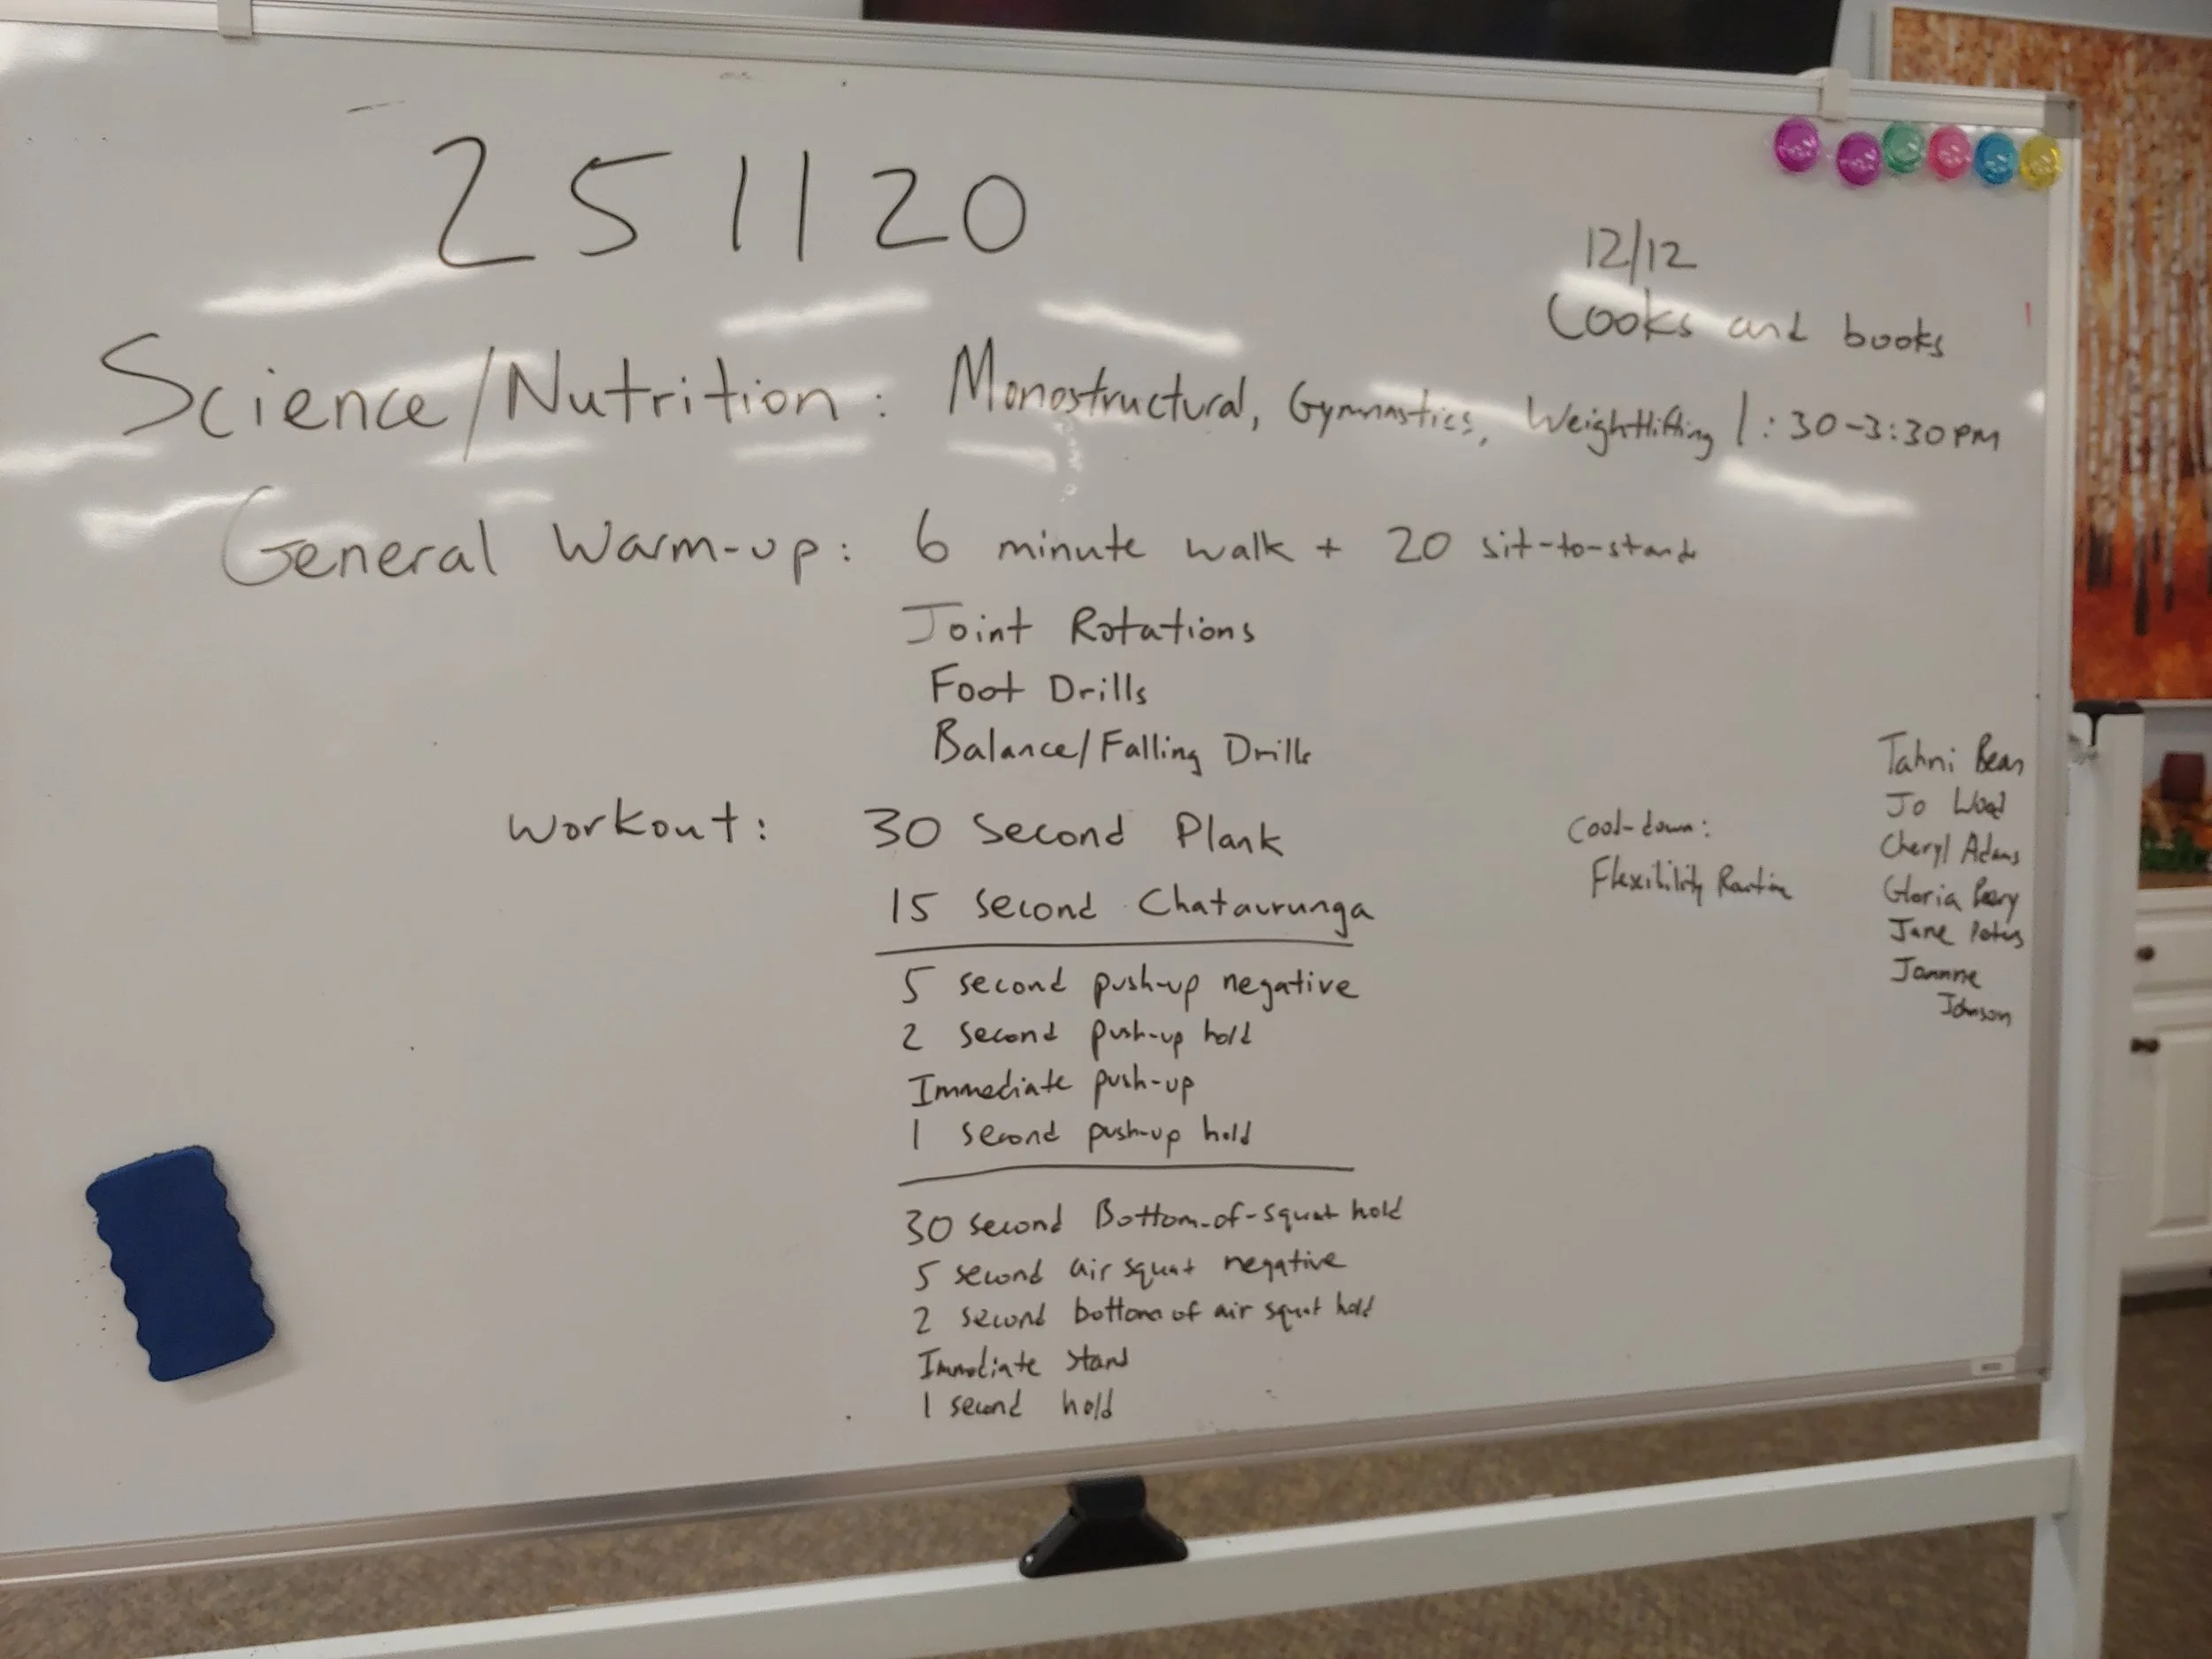 251120
12/12
Cooks and books
1:30-3:30PM
Science/Nutrition: Monostructural, Gymnastics, Weightlifting
General Warm-up: 6 minute walk + 20 sit-to-stands
Joint Rotations
Foot Drills
Balance/Falling Drills
Workout: 30 Second Plank
15 second Chataurunga
5 second push-up negative
2 second push-up hold
Immediate push-up
1 second push-up hold
30 second Bottom-of-squat hold
5 second air squat negative
2 second bottom of air squat hold
Immediate stand
1 second hold
Cool-down:
Flexibility Routine
Tahni Bean
Jo Wood
Cheryl Adams
Gloria
Jane
Johnson